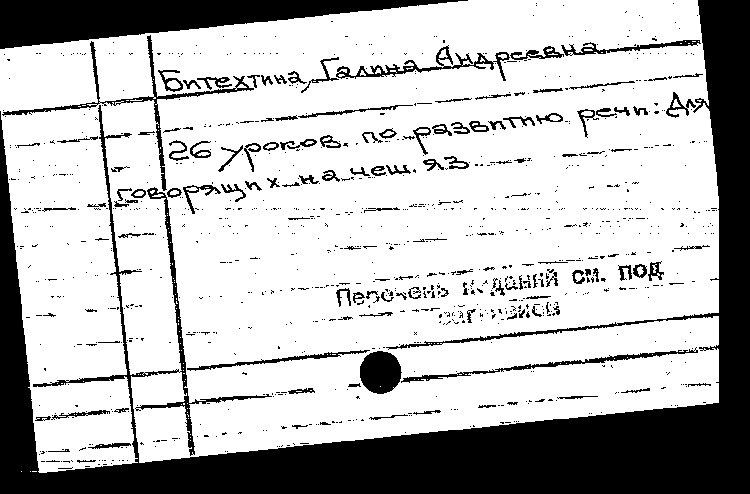 Битехтина, Галина Андреевна
26 уроков по развитию речи: Для
говорящих на чеш. яз.
Перечень изданий см. под
заглавием